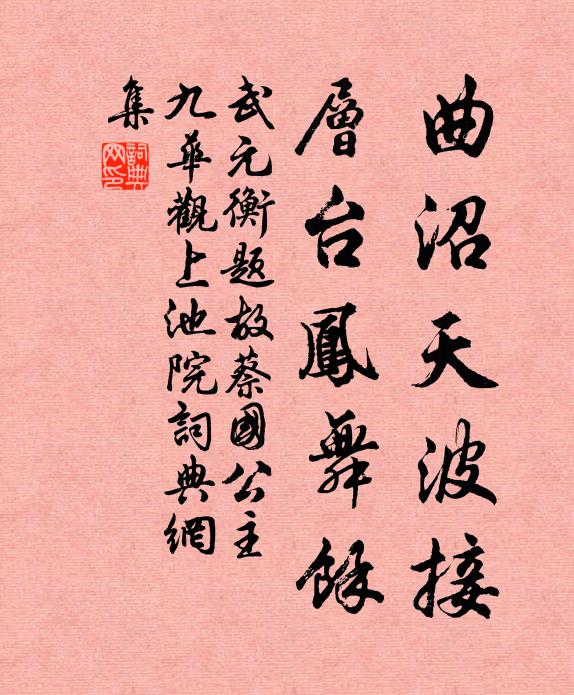 曲沼天波接
層台鳳舞餘
武元衡題故蔡國公主
九華觀上池院詞典網
集
詞典網印